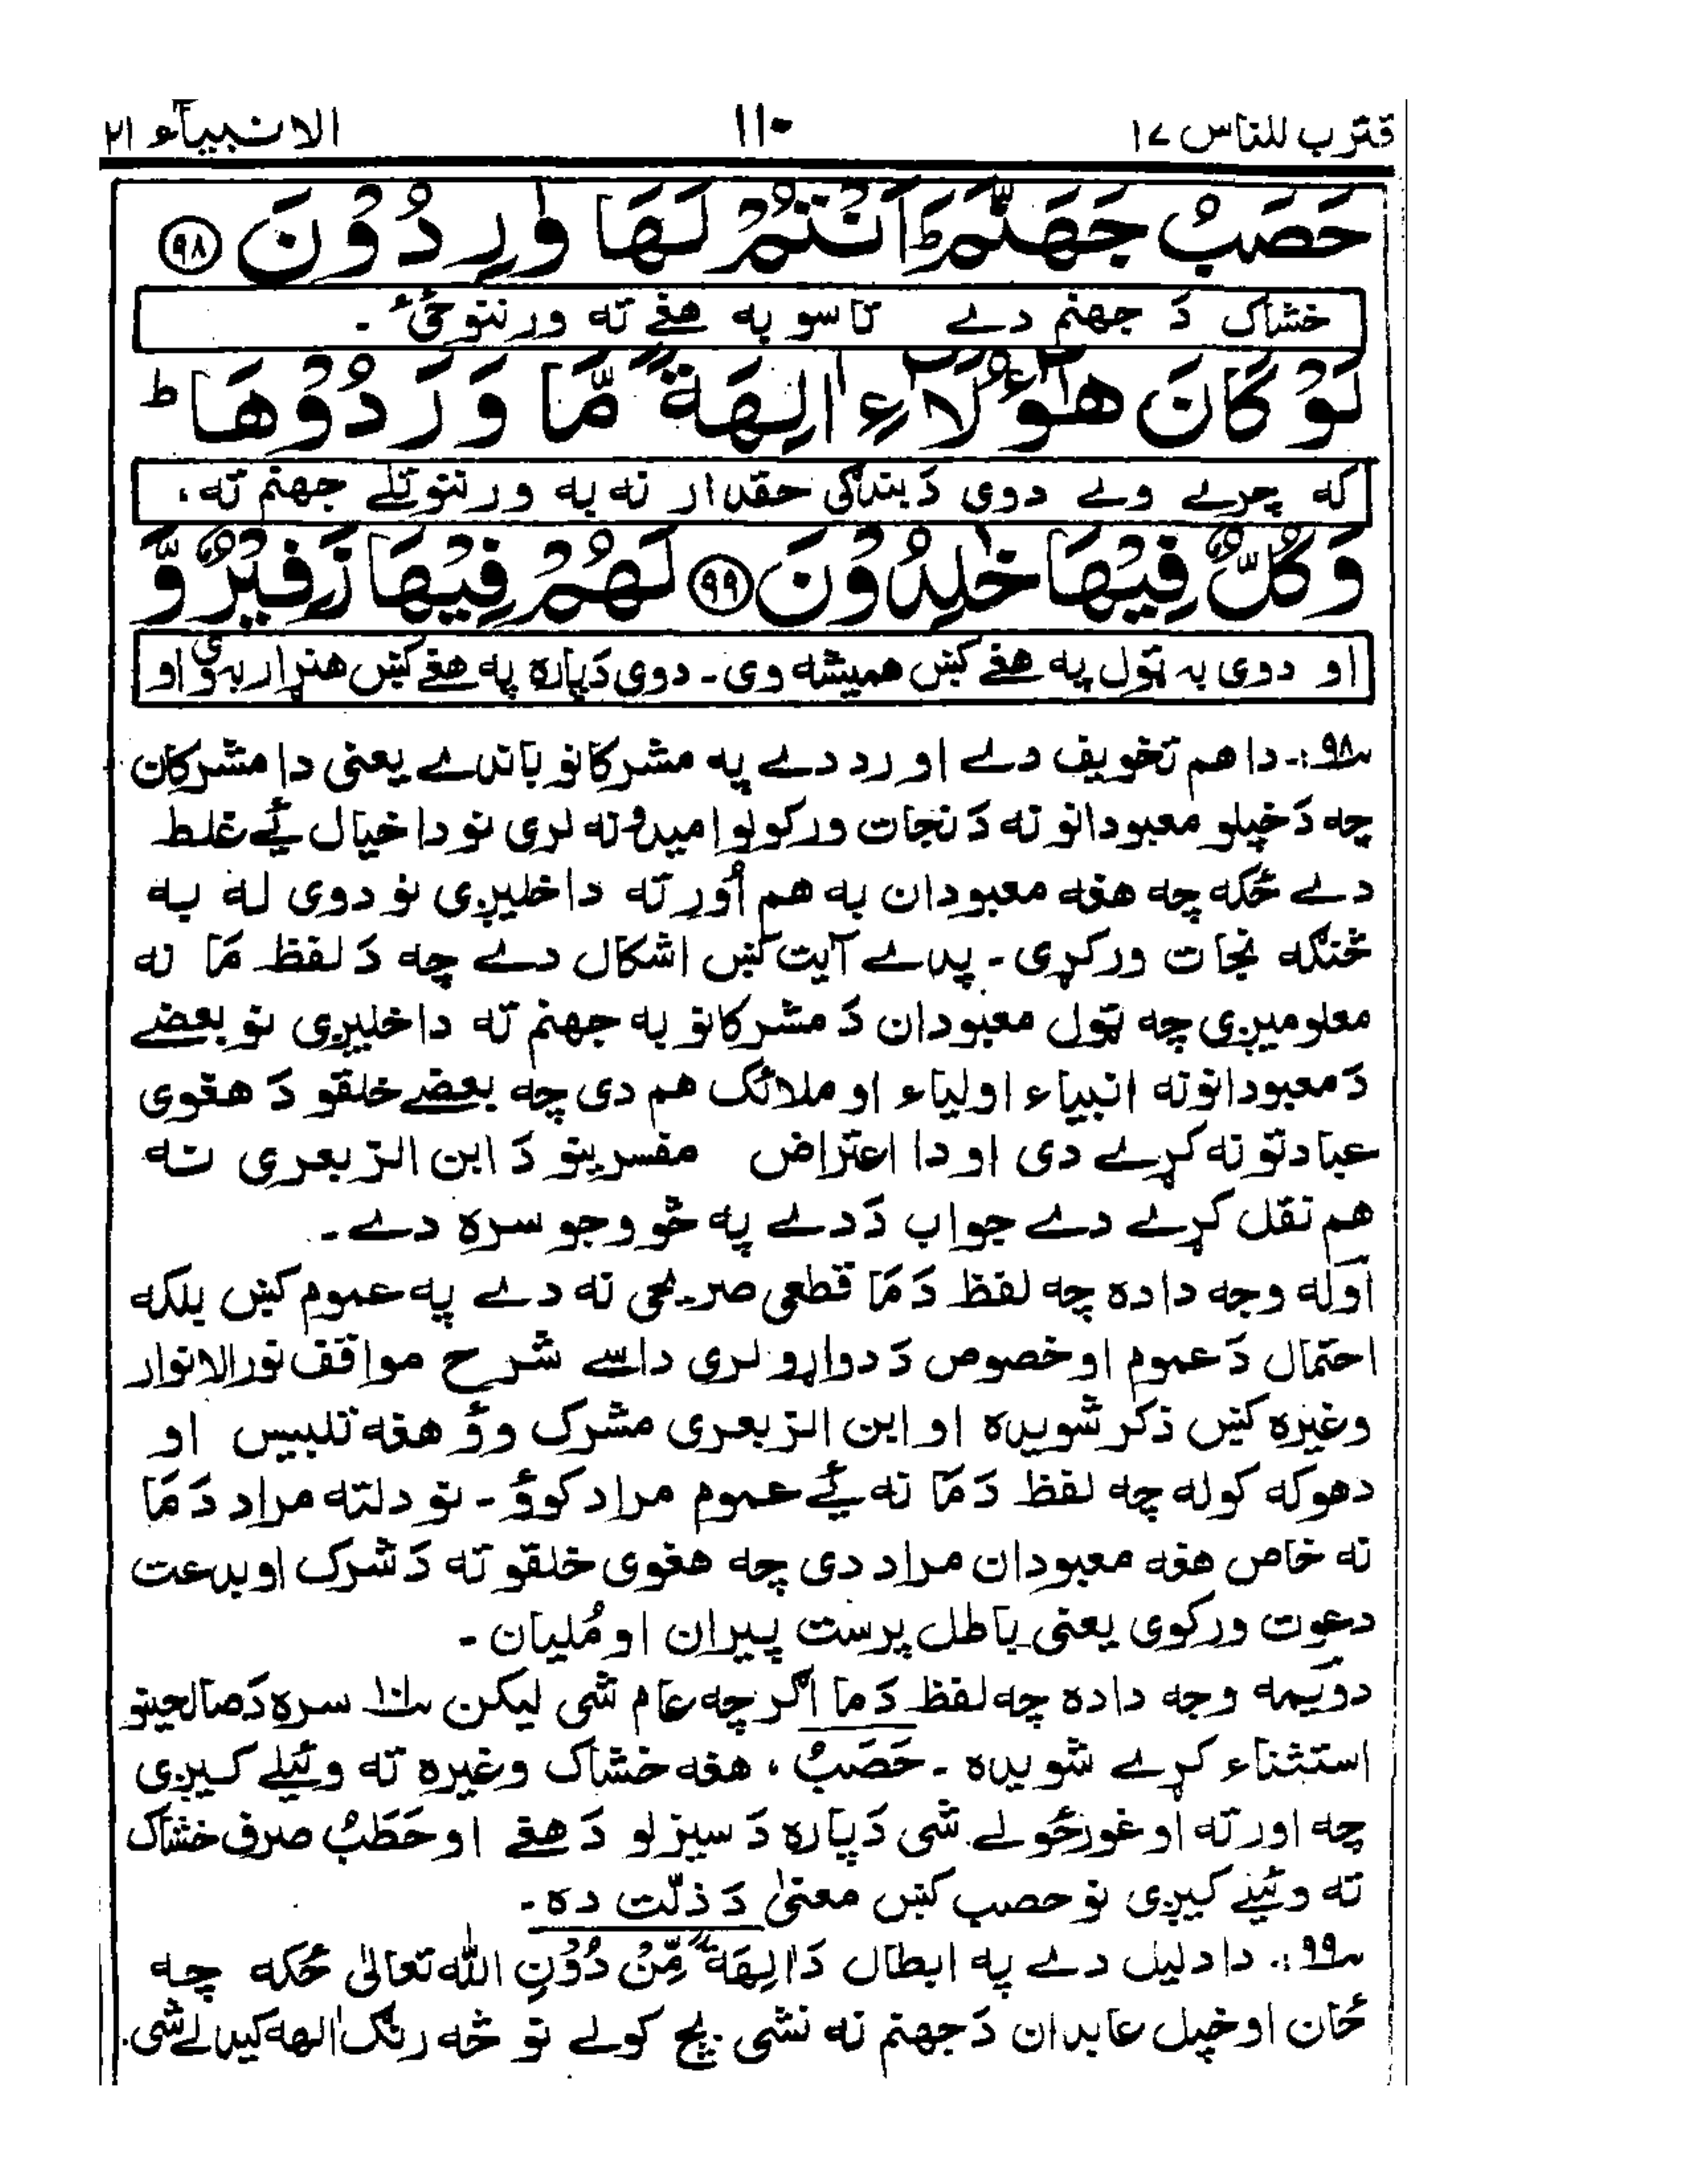 قترب للناس ۱۷ ۱۱۰ الانبیآء ۲۱
حَصَبُ جَهَنَّمَ ؕ اَنْتُمْ لَهَا وٰرِدُوْنَ ﴿۹۸﴾
خشاک دَ جهنم دے تاسو به هغے ته ورننوځئ.
لَوْ كَانَ هٰۤؤُلَآءِ اٰلِهَةً مَّا وَرَدُوْهَا ؕ
که چرے وے دوی دَ بندگی حقدار نه به ورننوتلے جهنم ته،
وَكُلٌّ فِيْهَا خٰلِدُوْنَ ﴿۹۹﴾ لَهُمْ فِيْهَا زَفِيْرٌ وَّ
او دوی به ټول په هغے کښ همیشه وی۔ دوی دَپاره په هغے کښ هنړار به وی او
۹۸ :۔ دا هم تخویف دے او رد دے په مشرکانو باندے یعنی دا مشرکان
چه دَ خپلو معبودانو نه دَ نجات ورکولو امیدونه لری نو دا خیال ئے غلط
دے ځکه چه هغه معبودان به هم اُور ته داخلیږی نو دوی له به
څنگه نجات ورکړی۔ پدے آیت کښ اشکال دے چه دَ لفظ مَا نه
معلومیږی چه ټول معبودان دَ مشرکانو به جهنم ته داخلیږی نو بعضے
دَ معبودانو نه انبیاء اولیاء او ملائک هم دی چه بعضے خلقو دَ هغوی
عبادتونه کړے دی او دا اعتراض مفسرینو دَ ابن الزبعری نه
هم نقل کړے دے جواب دَ دے په څو وجو سره دے۔
اَوله وجه دا ده چه لفظ دَ مَا قطعی صریحی نه دے په عموم کښ بلکه
احتمال دَ عموم او خصوص دَ دواړو لری داسے شرح مواقف نورالانوار
وغیره کښ ذکر شویده او ابن الزبعری مشرک وؤ هغه تلبیس او
دهوکه کوله چه لفظ دَ مَا نه ئے عموم مراد کوؤ۔ نو دلته مراد دَ مَا
نه خاص هغه معبودان مراد دی چه هغوی خلقو ته دَ شرک او بدعت
دعوت ورکوی یعنی باطل پرست پیران او مُلیان۔
دویَمه وجه دا ده چه لفظ دَ ما اگرچه عام شی لیکن ۱۰۱ سره دَ صالحینو
استثناء کړے شویده۔ حَصَبُ، هغه خشاک وغیره ته وئیلے کیږی
چه اور ته اوغورځولے شی دَپاره دَ سیزلو دَ هغے او حَطَبُ صرف خشاک
ته وئیلے کیږی نو حصب کښ معنیٰ دَ ذلّت ده۔
۹۹ :۔ دا دلیل دے په ابطال دَ اٰلِهَةً مِّنْ دُوْنِ اللّٰه تعالیٰ ځکه چه
ځان او خپل عابدان دَ جهنم نه نشی بچ کولے نو څه رنگ اٰلهه کیدلے شی.